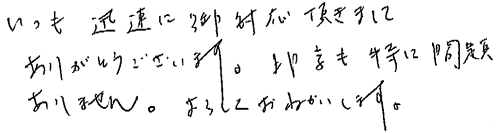 いつも 迅速に御対応頂きまして
ありがとうございます。印字も特に問題
ありません。よろしくおねがいします。